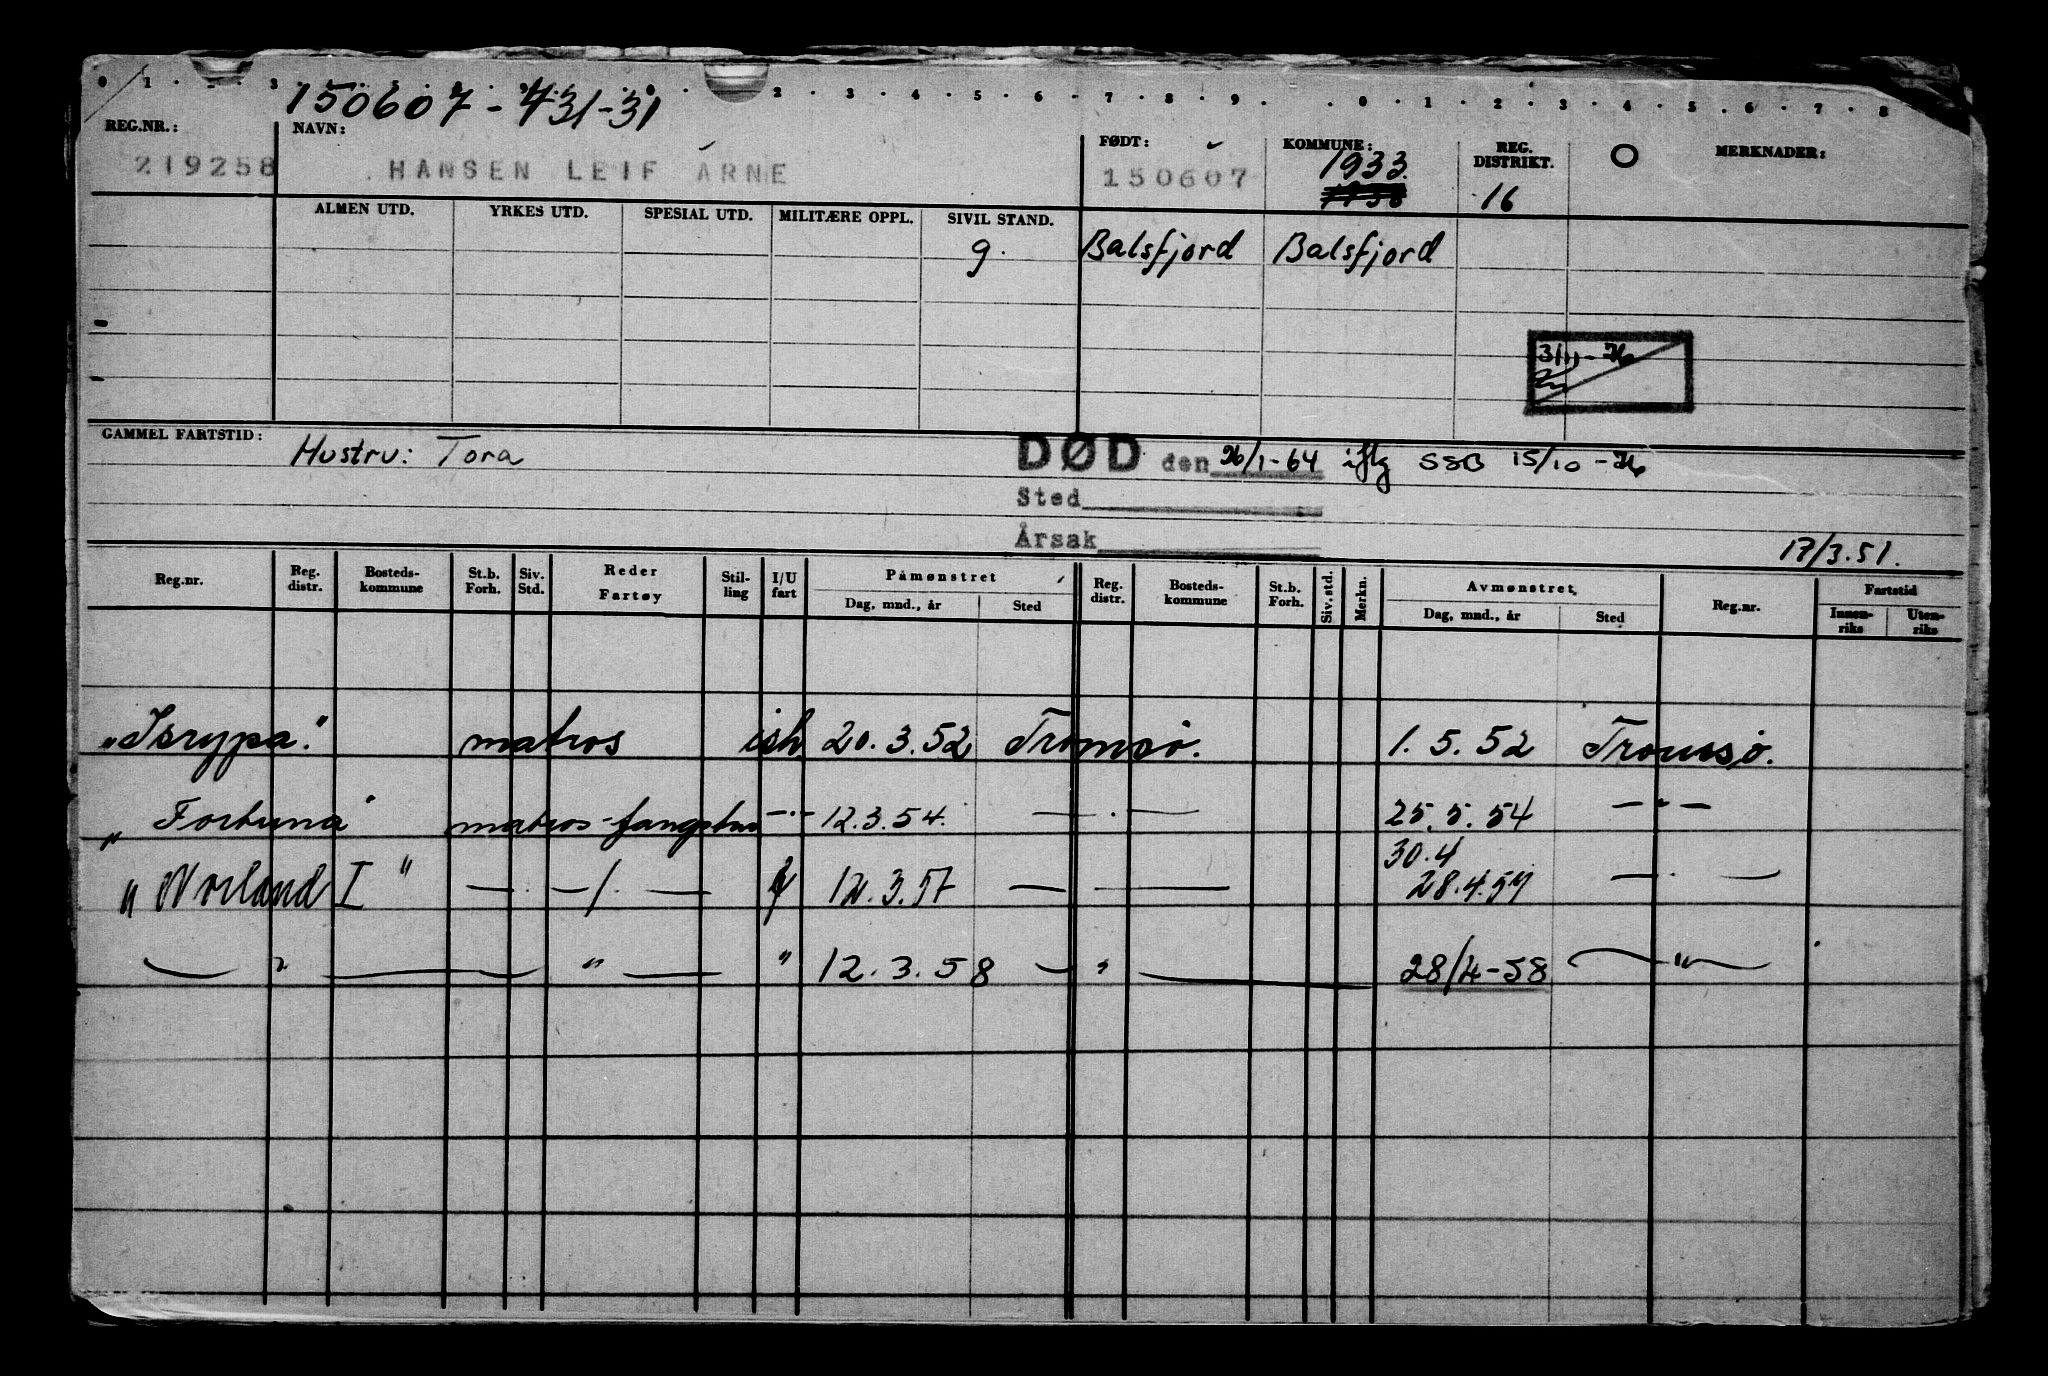 0 1 . 3 . . . . . . 2 . 3 . 4 . 5 . 6 . 7 . 8 . 9 . . 0 . 1 . 2 . 3 . 4 . 5 . 6 . 7 . 8
150607-431-31
REG.NR.: NAVN: FØDT: KOMMUNE: REG. DISTRIKT. O MERKNADER:
219258 HANSEN LEIF ARNE 150607 1933. 16
ALMEN UTD. YRKES UTD. SPESIAL UTD. MILITÆRE OPPL. SIVIL STAND.
g. Balsfjord Balsfjord
3/11-76
GAMMEL FARTSTID: Hustru: Tora DØD den 26/1-64 iflg SSB 15/10-76
Sted
Årsak
17/3.51.
Reg.nr. Reg. distr. Bosteds-kommune St.b. Forh. Siv. Std. Reder Fartøy Stil-ling I/U fart Påmønstret Reg. distr. Bosteds-kommune St.b. Forh. Siv. std. Merkn. Avmønstret Reg.nr. Fartstid
Dag, mnd., år Sted Dag, mnd., år Sted Innen-riks Uten-riks
"Isrypa." matros ish. 20.3.52 Tromsø. 1.5.52 Tromsø.
"Fortuna" matros-fangstm —.— 12.3.54. — . — 25.5.54 — " —
30.4
"Norland I" — . — / . — 12.3.57 — — 28.4.57 — . —
— " — — " — " 12.3.58 — " — 28/4-58 — " —